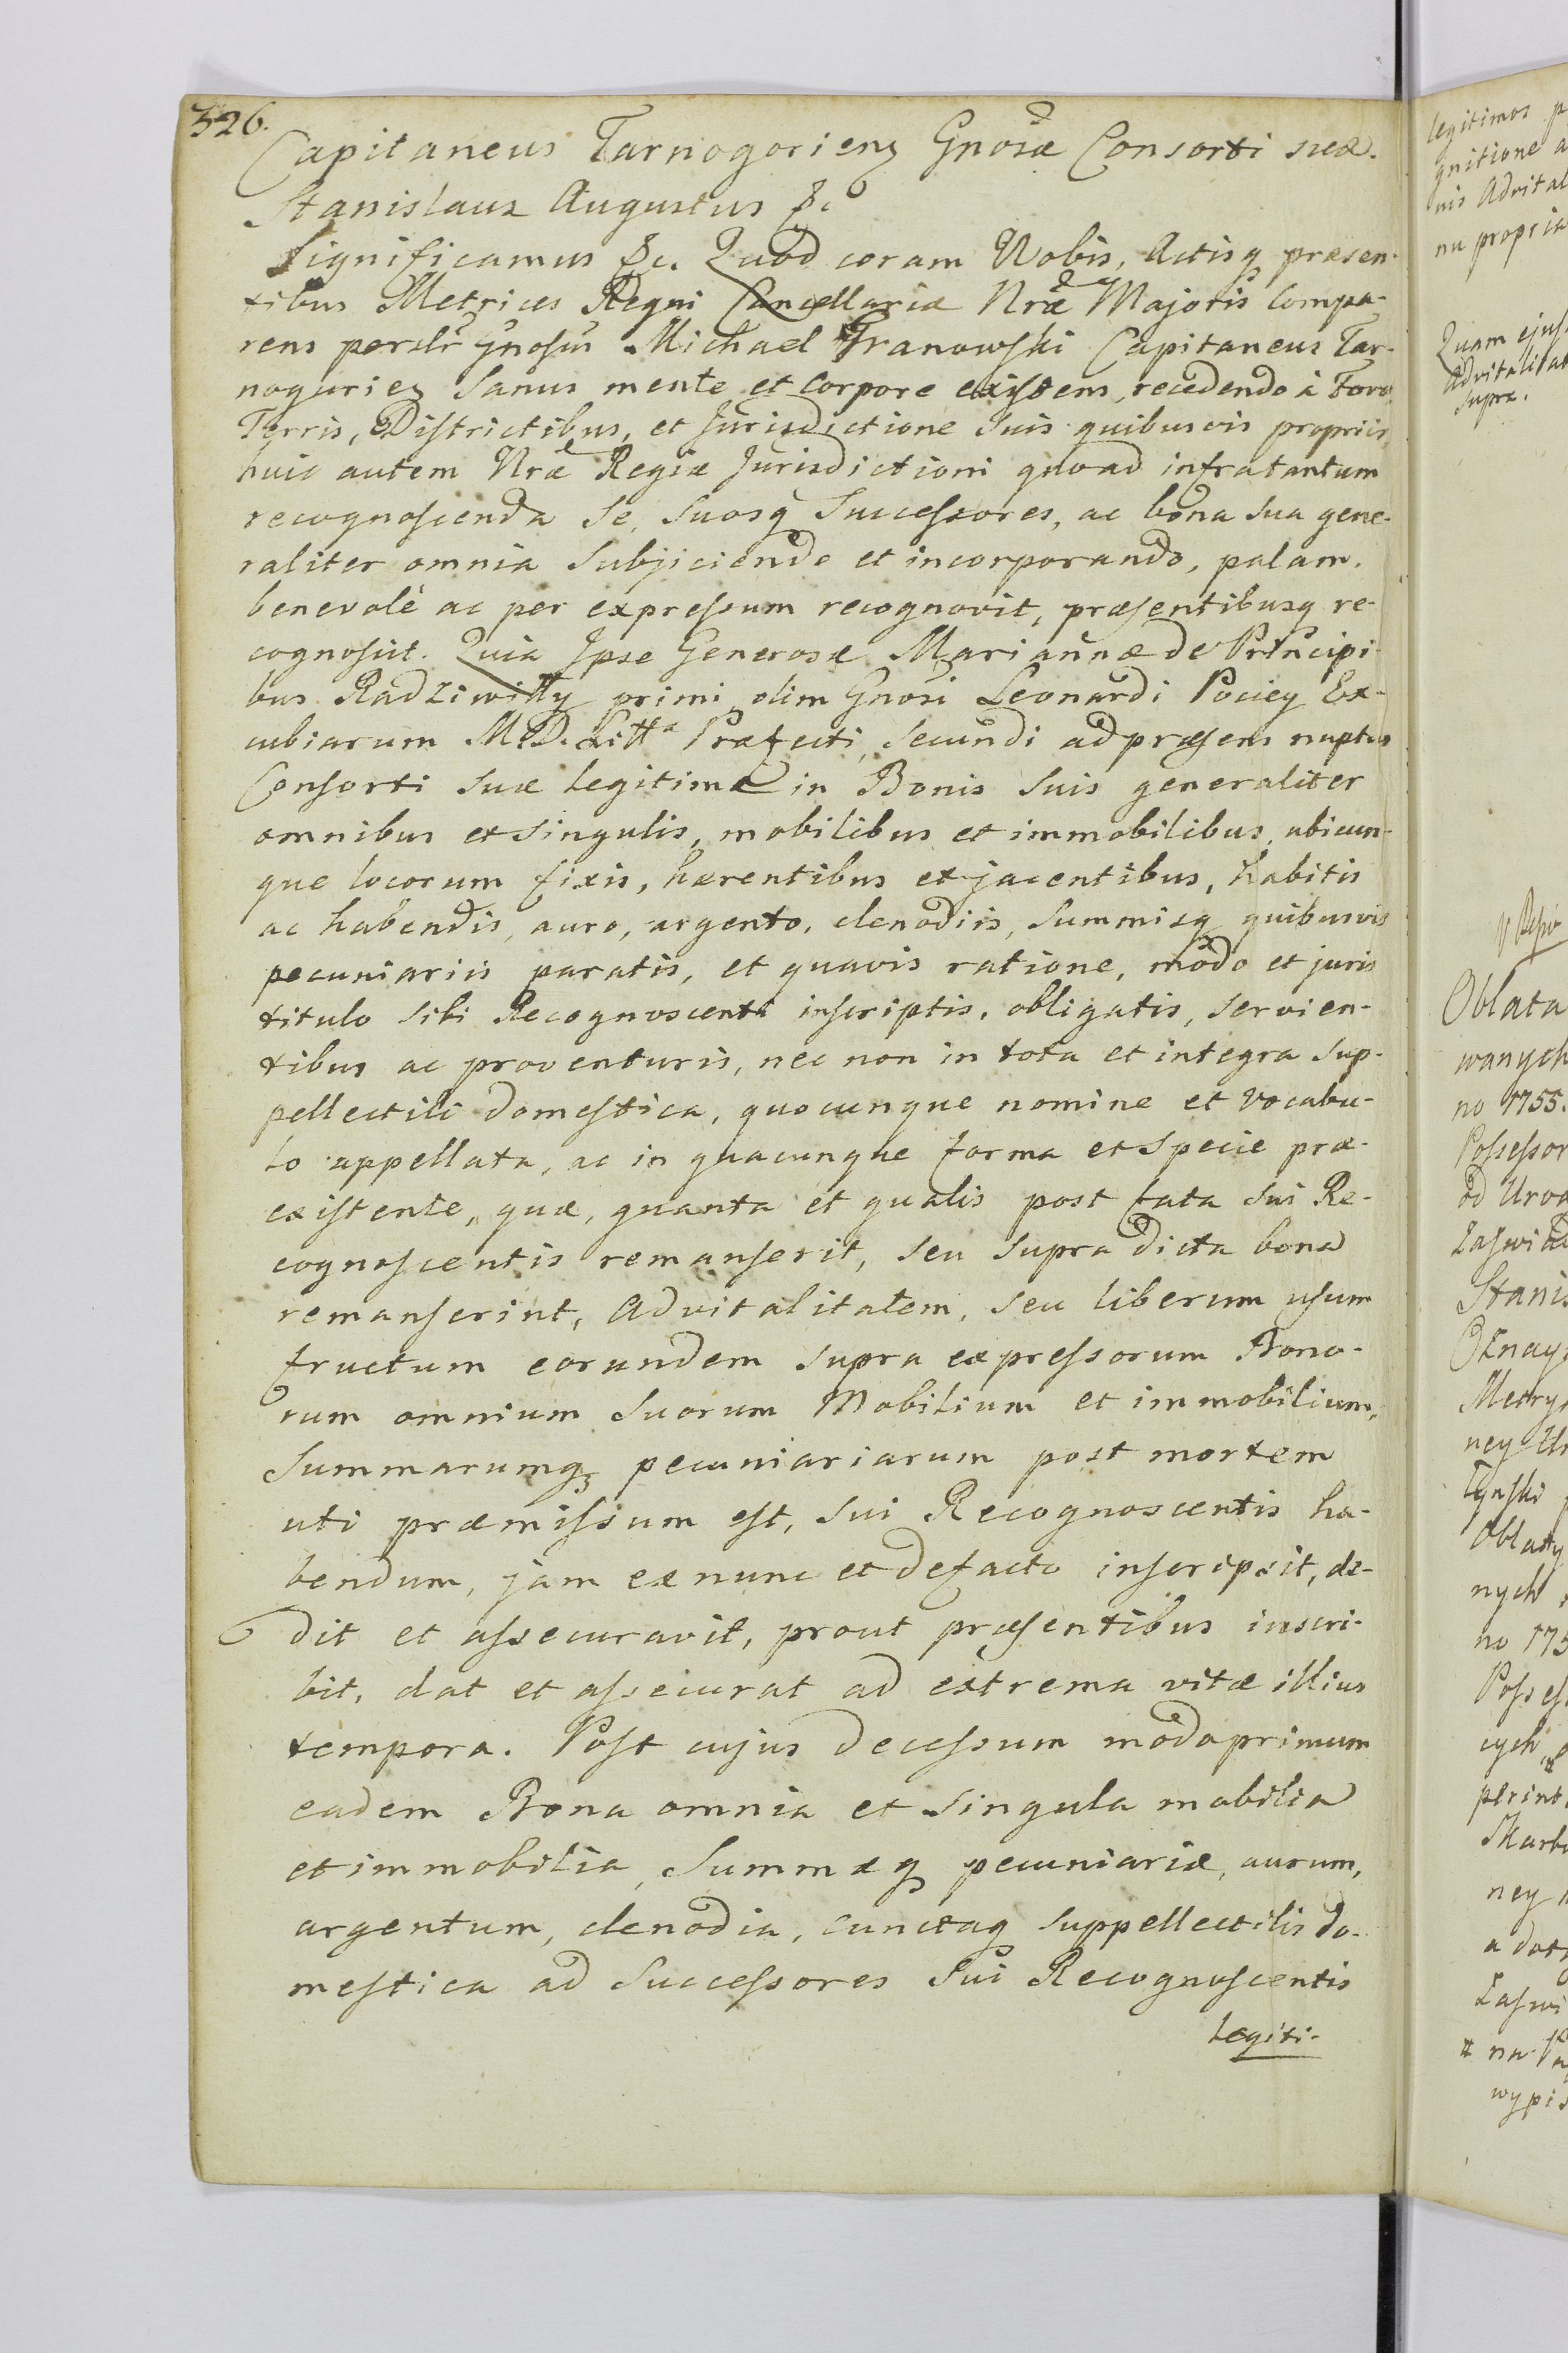 326.
Capitaneus Tarnogoriens Gnosæ Consorti suæ.
Stanislaus Augustus &c
Significamus &c. Quod coram Nobis, Actisq præsen-
tibus Metrices Regni Cancellariæ Nræ Majoris Compa-
rens personlr Gnosus Michael Granowski Capitaneus Tar-
nogoriens Sanus mente et Corpore existens, recedendo à Foro,
Terris, Districtibus, et Jurisdictione Suis quibusvis propriis,
huic autem Nræ Regiæ Jurisdictioni quoad infratantum
recognoscenda Se, Suosq Successores, ac bona Sua gene-
raliter omnia Subjiciendo et incorporando, palam,
benevolè ac per expressum recognovit, præsentibusq re-
cognoscit. Quia Ipse Generosæ Mariannæ de Principi-
bus Radziwiłły primi olim Gnosi Leonardi Pociey Ex-
cubiarum M.D. Litt Præfecti, Secundi ad præsens nuptus
Consorti Suæ Legitimæ in Bonis Suis generaliter
omnibus et Singulis, mobilibus et immobilibus, ubicun-
que locorum fixis, hærentibus et jacentibus, habitis
ac habendis, auro, argento, clenodiis, Summisq quibusvis
pecuniariis paratis, et quavis ratione, modo et juris
titulo Sibi Recognoscenti inscriptis, obligatis, Servien-
tibus ac proventuris, nec non in tota et integra Sup-
pellectili domestica, quocunque nomine et vocabu-
lo appellata, ac in quacunque forma et Specie præ-
existente, quæ, quanta et qualis post fata Sui Re-
cognoscentis remanserit, Seu Supra dicta bona
remanserint, Advitalitatem, Seu liberum usum
fructum eorundem Supra expressorum Bono-
rum omnium Suorum Mobilium et immobilium,
Summarumq pecuniariarum post mortem
uti præmissum est, Sui Recognoscentis ha-
bendum, jam ex nunc et de facto inscripsit, de-
dit et assecuravit, prout præsentibus inscri-
bit, dat et assecurat ad extrema vitæ illius
tempora. Post cujus decessum modo primum
eadem Bona omnia et Singula mobilia
et immobilia, Summæq pecuniariæ, aurum,
argentum, clenodia, cunctaq Suppellectilis do-
mestica ad Successores Sui Recognoscentis
Legiti-
legitimos
gnitione
nis Advital
nu propria
Quam ejusd
Advitalitat
Supra.
Oblata
wanych
no 1755.
Possessor
od Urod
Zaswiad
Stanis
Metry
ney
Oblaty
nych
no 175
Possess
cych
perint
Skarb
ney
a daty
Zaswi
na
wypis